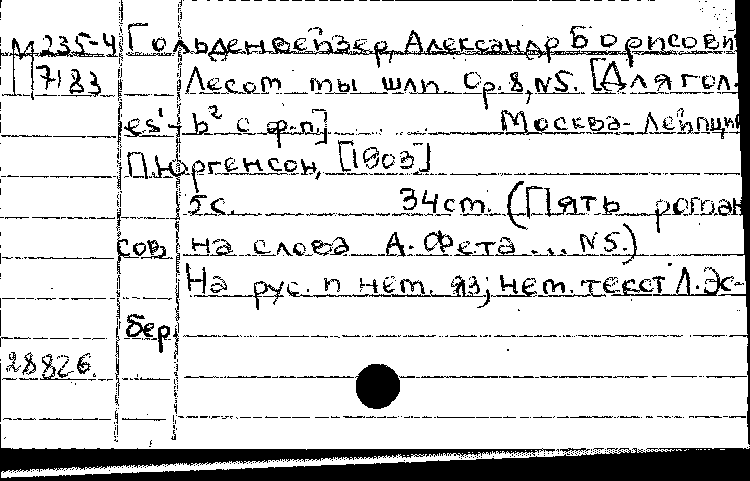 М 235-4 Гольденвейзер, Александр Борисови
7183 Лесом мы шли. Ор. 8, N5. [Для гол.
es'-b² с ф-п.] ... Москва-Лейпциг
П. Юргенсон, [1903]
5с. 34cm. (Пять роман
сов на слова А. Фета ... N5.)
На рус. и нем. яз; нем. текст Л. Эс-
бер.
28826.